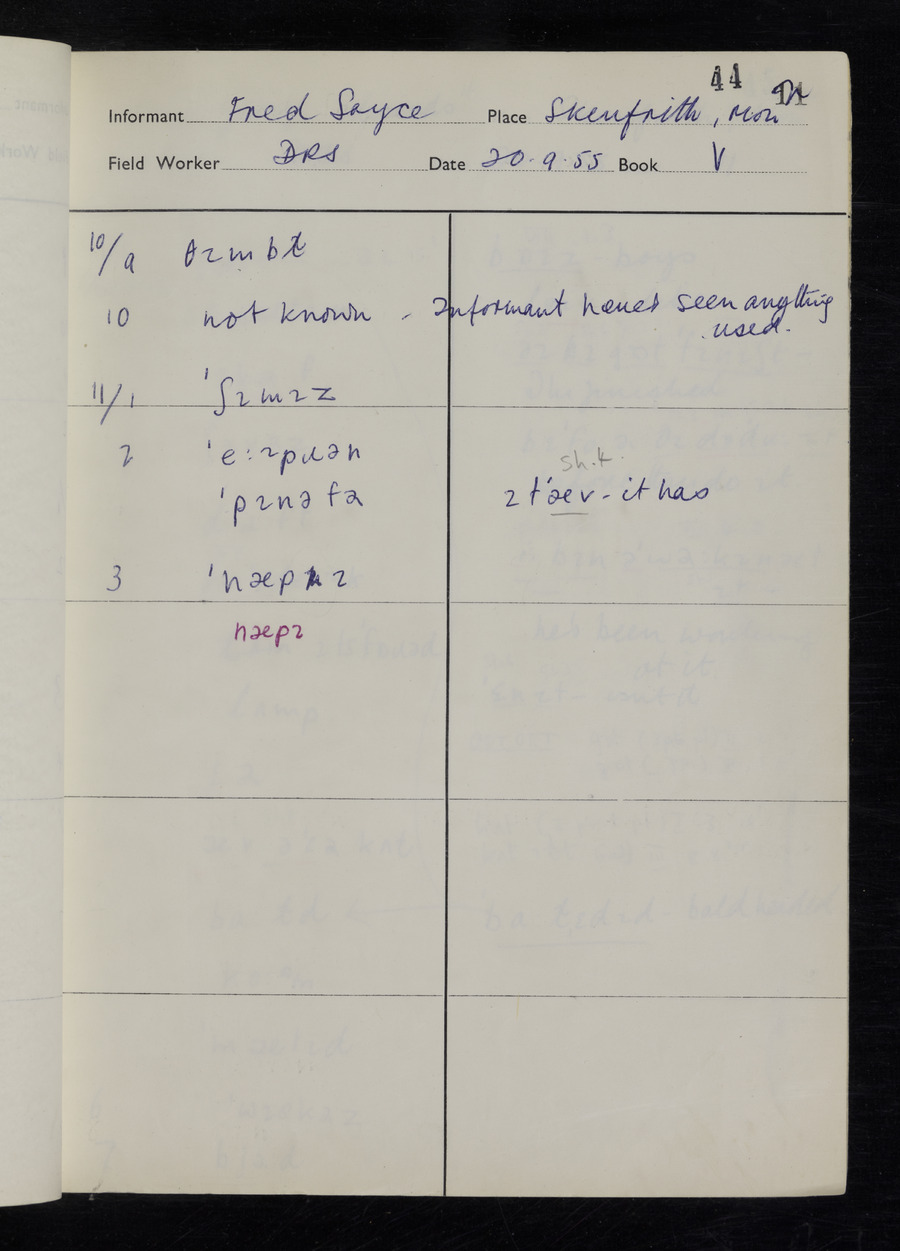 44
Informant Fred Sayce Place Skenfrith, Mon
Field Worker DRS Date 20.9.55 Book V
10/9 θɪmbɫ
10 not known - Informant never seen anything
used.
11/1 ˈʃɪmɪz
2 ˈe:ɪpɹən
sh.k.
ˈpɪnəfə ɪtˈæv - it has
3 ˈnæpɪ
næpɪ